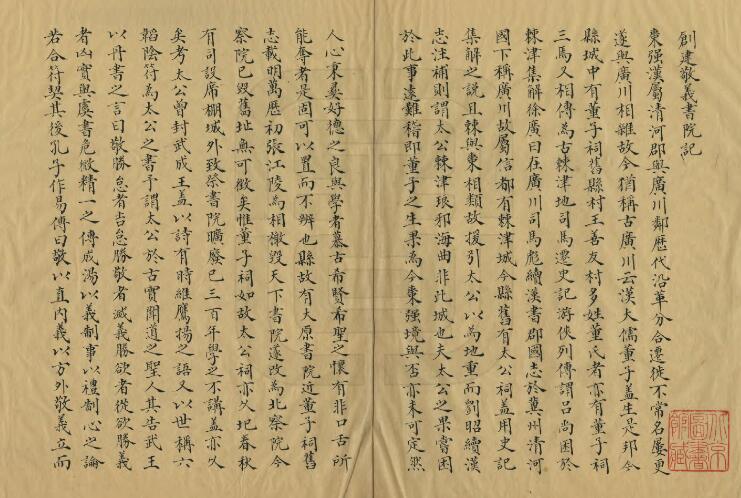 創建敬義書院記
棗強漢屬清河郡與廣川鄰歷代沿革分合遷徙不常名屢更
遂與廣川相雜故今猶稱古廣川云漢大儒董子蓋生是邦今
縣城中有董子祠舊縣村王善友村多姓董氏者亦有董子祠
三焉又相傳為古棘津地司馬遷史記游俠列傳謂呂尚困於
棘津集解徐廣曰在廣川司馬彪續漢書郡國志於冀州清河
國下稱廣川故屬信都有棘津城今縣舊有太公祠蓋用史記
集解之說且棘與棗相類故援引太公以為地重而劉昭續漢
志注補則謂太公棘津琅邪海曲非此城也夫太公之果嘗困
於此事遠難稽即董子之生果為今棗強境與否亦未可定然
人心秉彝好德之良與學者慕古希賢希聖之懷有非口舌所
能奪者是固可以置而不辨也縣故有大原書院近董子祠舊
志載明萬歷初張江陵為相檄毀天下書院遂改為北察院今
察院已毀舊址無可徵矣惟董子祠如故太公祠亦久圮春秋
有司設席棚城外致祭書院曠廢已三百年學之不講蓋亦久
矣考太公曾封武成王蓋以詩有時維鷹揚之語又以世稱六
韜陰符為太公之書予謂太公於古實聞道之聖人其告武王
以丹書之言曰敬勝怠者吉怠勝敬者滅義勝欲者從欲勝義
者凶實與虞書危微精一之傳成湯以義制事以禮制心之論
若合符契其後孔子作易傳曰敬以直內義以方外敬義立而